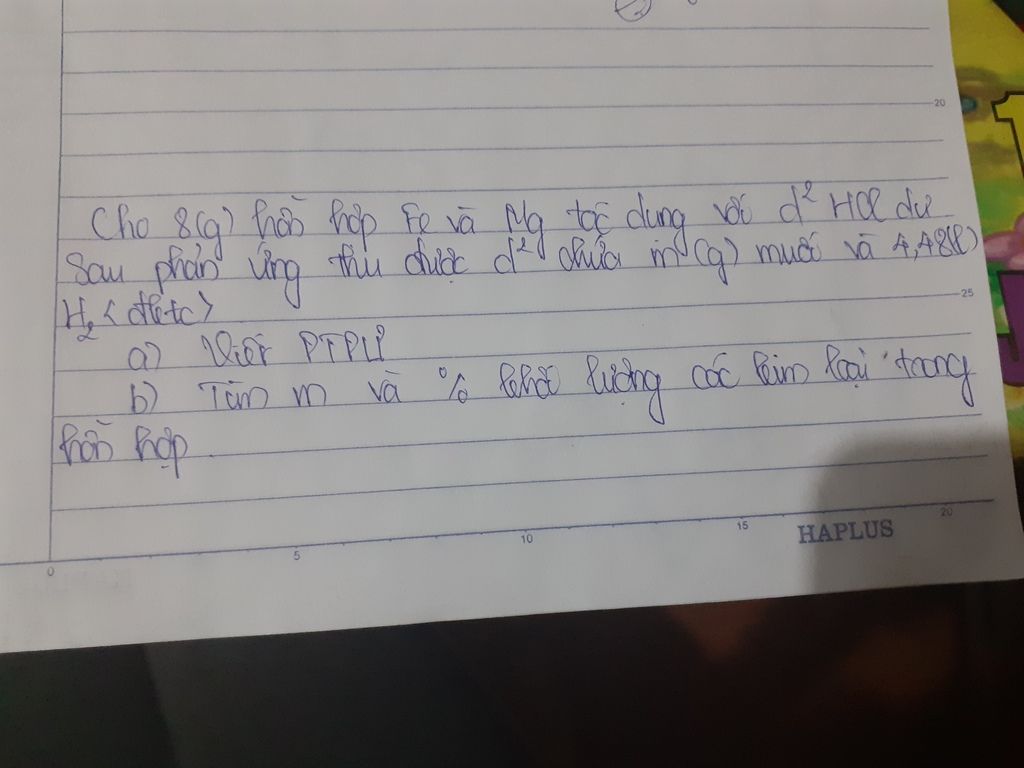 20
Cho 8(g) hỗn hợp Fe và Mg tác dụng với d² HCl dư
Sau phản ứng thu được d² chứa m (g) muối và 4,48(l)
H₂ <đktc>
25
a) Viết PTPƯ
b) Tìm m và % khối lượng các kim loại trong
hỗn hợp.
0 5 10 15 20
HAPLUS